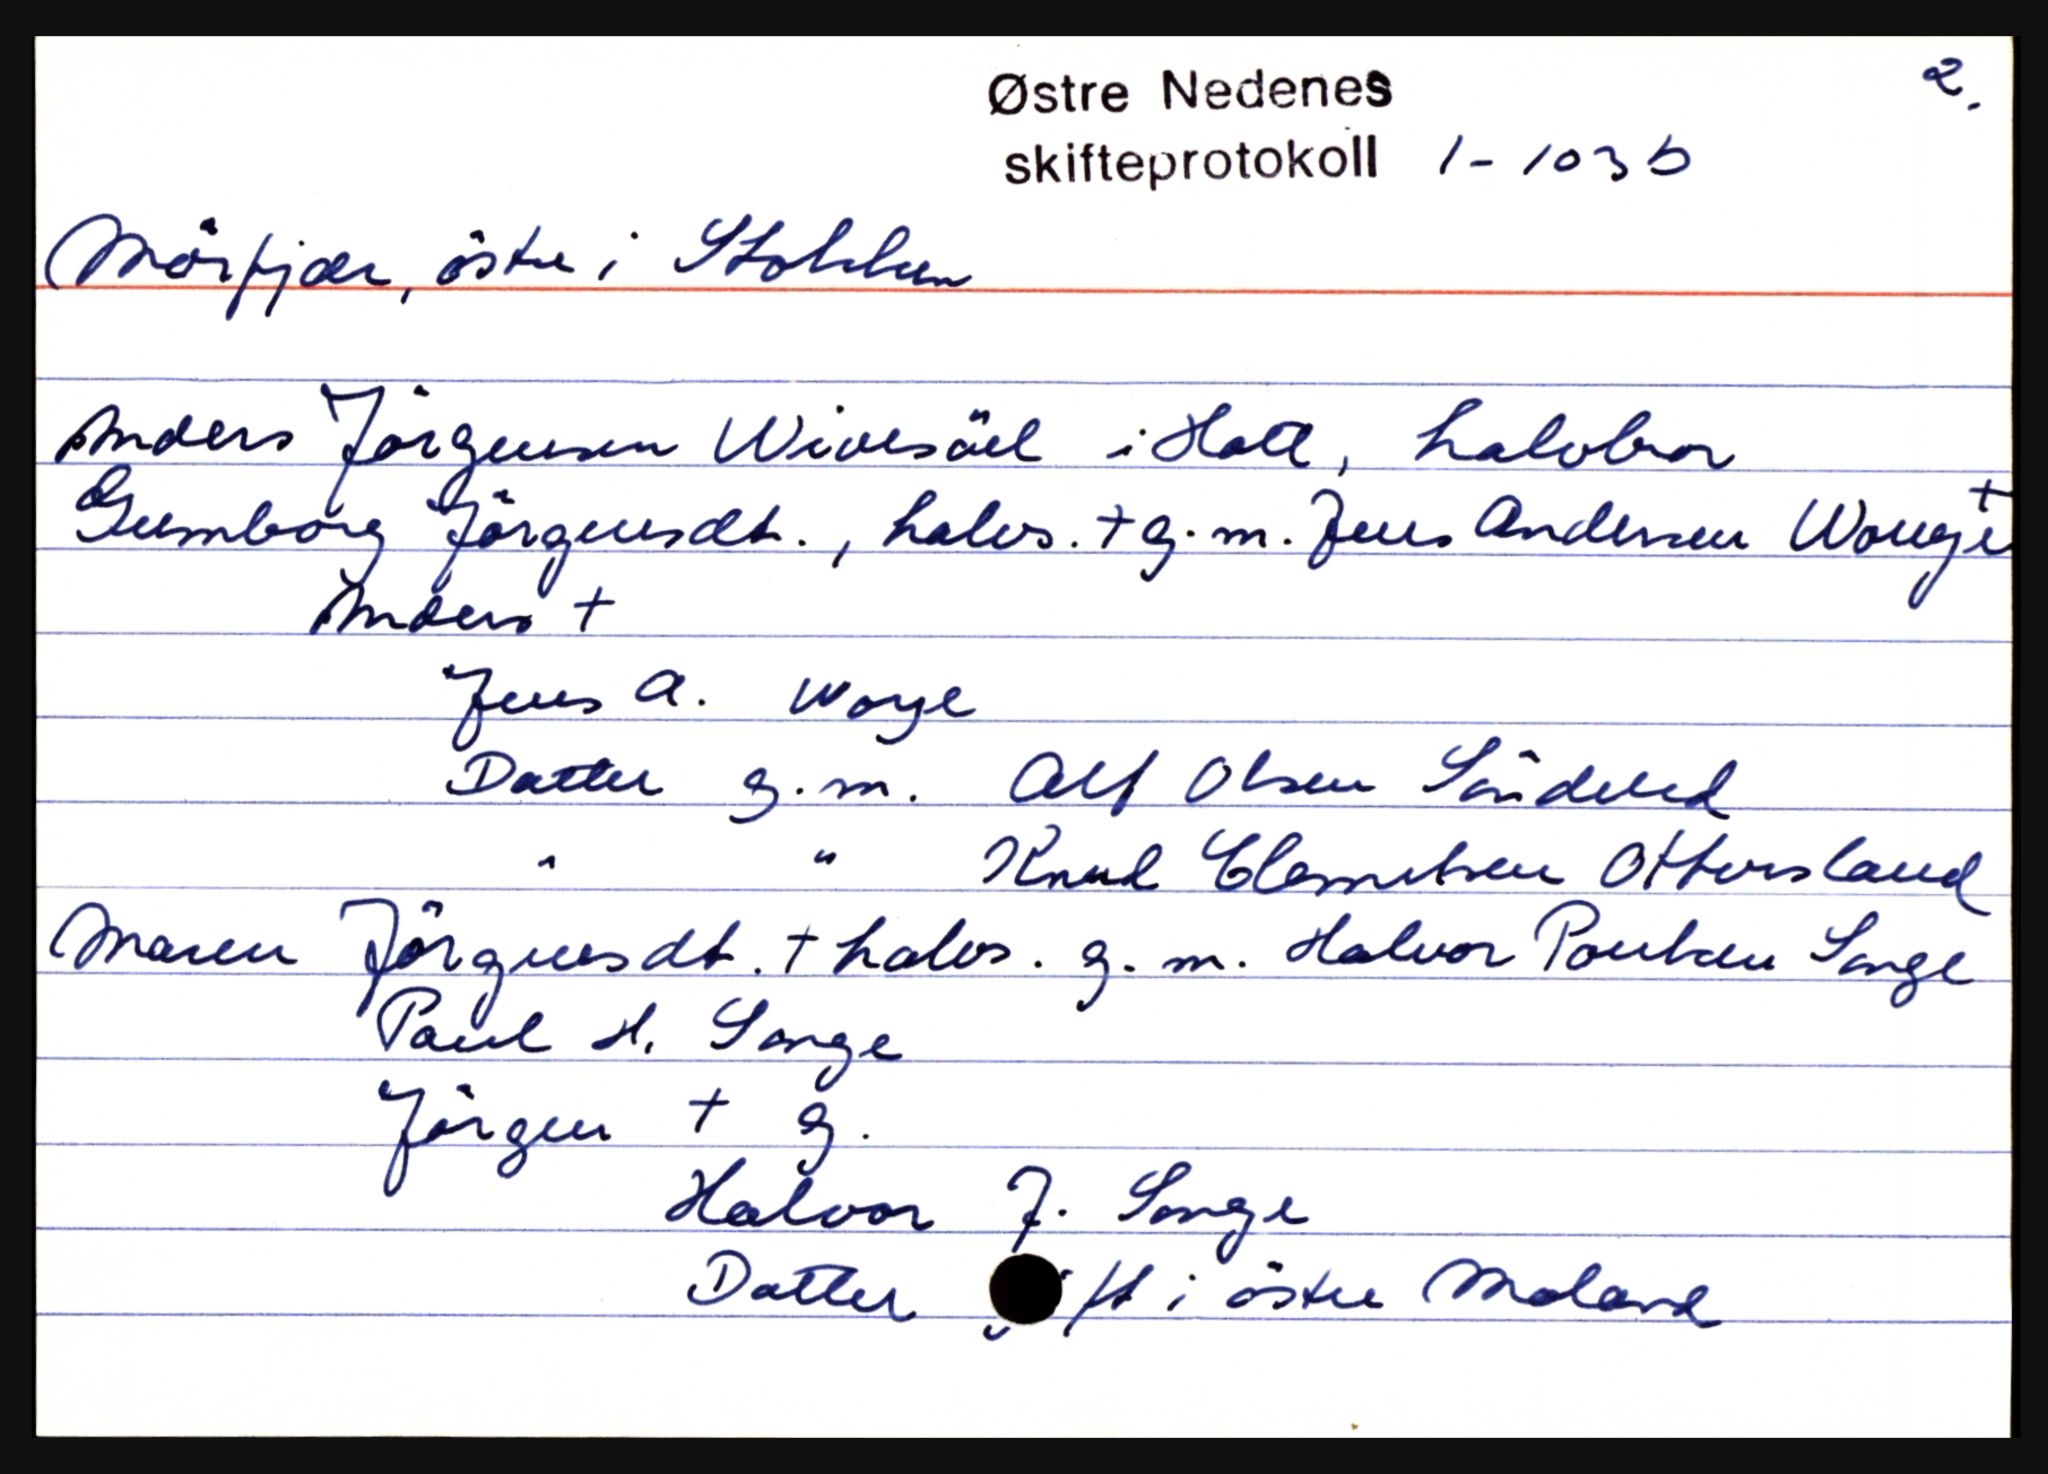 2.
Østre Nedenes
skifteprotokoll 1-103b
Mörfjær, östre i Stokken
Anders Jörgensen Wivesöel i Holt, halvbror
Gumborg Jörgensdt., halvs. + g.m. Jens Andersen Wougie +
Anders +
Jens A. Woye
Datter g.m. Alf Olsen Söndeled
" " Knud Clemetsen Ottersland
Maren Jörgensdt. + halvs. g.m. Halvor Poulsen Songe
Paul H. Songe
Jörgen + g.
Halvor J. Songe
Datter gift i östre Moland